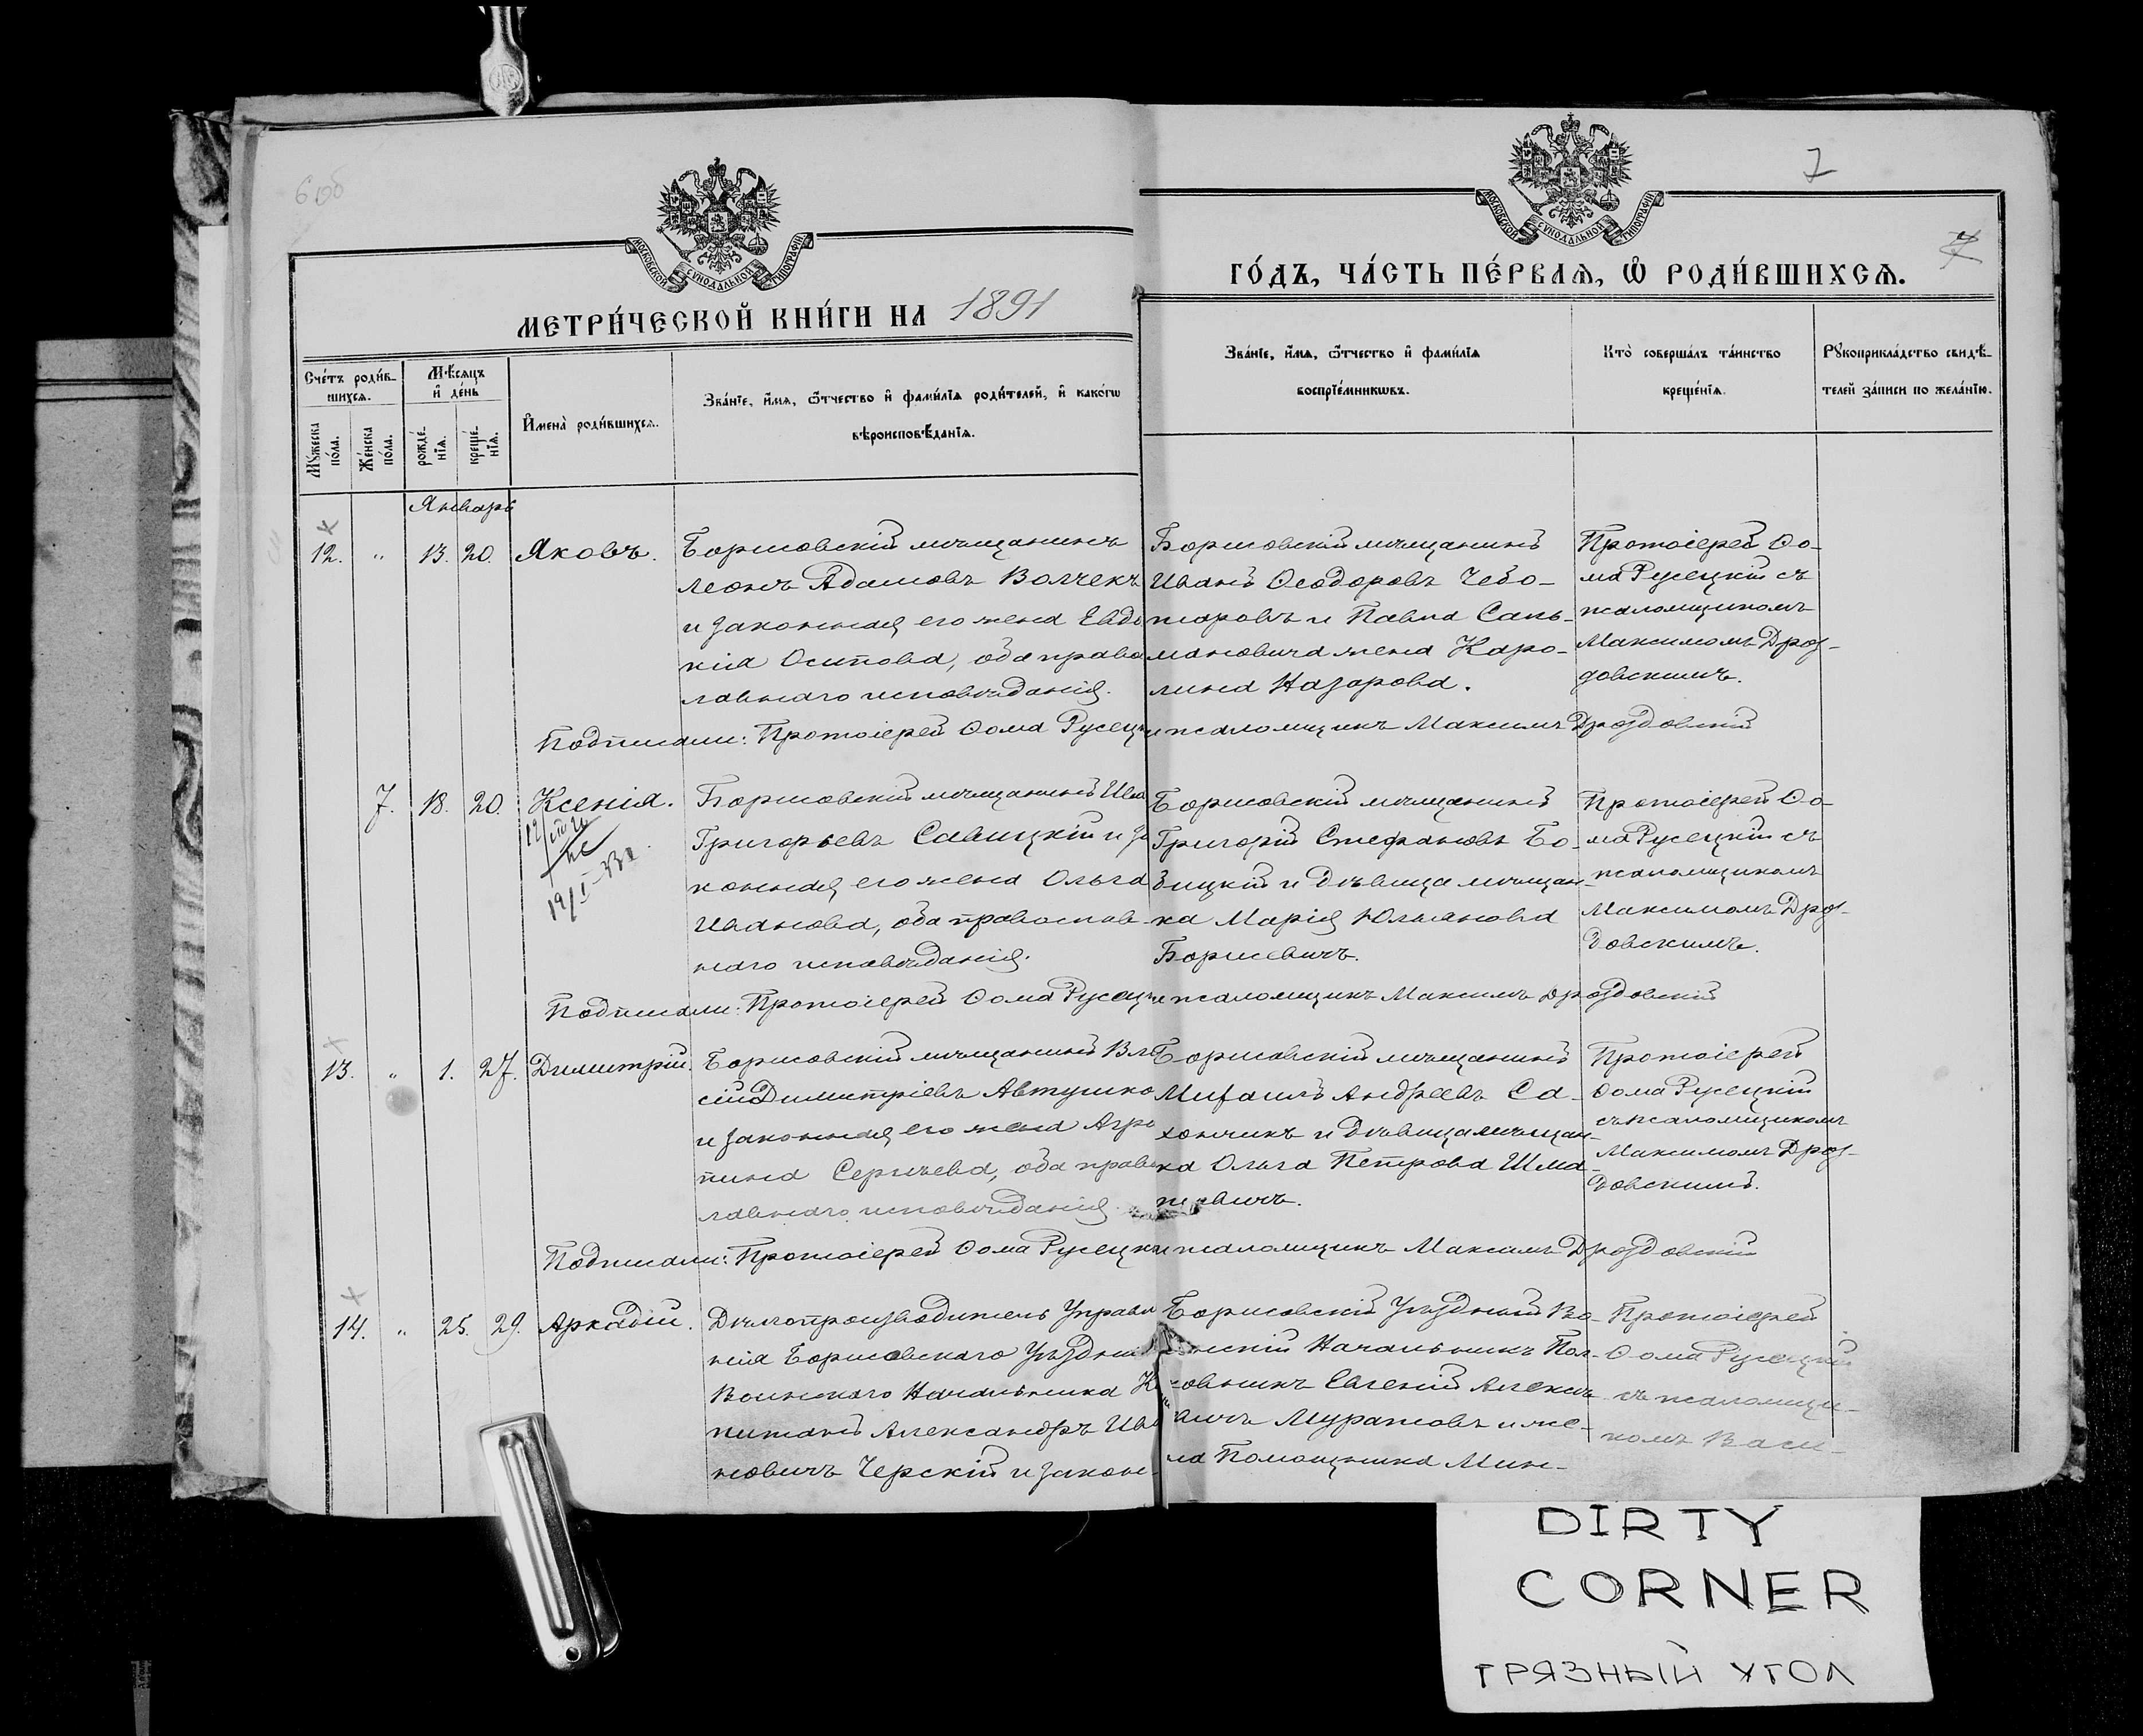 6 об
7
7
МОСКОВСКОЙ СѴНОДАЛЬНОЙ ТИПОГРАФІИ
МОСКОВСКОЙ СѴНОДАЛЬНОЙ ТИПОГРАФІИ
МЕТРИ́ЧЕСКОЙ КНИ́ГИ НА 1891
ГО́ДЪ, ЧА́СТЬ ПЕ́РВАѦ, Ѡ҆ РОДИ́ВШИХСѦ.
Сче́тъ роди́в-
шихсѧ.
Мꙋ́жеска
по́ла.
Же́нска
по́ла.
Мѣ́сѧцъ
и҆ де́нь
рожде́-
нїѧ.
креще́-
нїѧ.
И҆мена̀ роди́вшихсѧ.
Зва́нїе, и҆́мѧ, ѻ҆́тчество и҆ фами́лїѧ роди́телей, и҆ како́гѡ
вѣроисповѣ́данїѧ.
Зва́нїе, и҆́мѧ, ѻ҆́тчество и҆ фами́лїѧ
воспрїе́мникѡвъ.
Кто̀ соверша́лъ та́инство
креще́нїѧ.
Рꙋкоприкла́дство свидѣ́-
телей за́писи по жела́нїю.
Январь
12. " 13. 20. Яковъ.
Борисовскій мѣщанинъ
Леонъ Адамовъ Волчекъ
и законная его жена Евдо
кія Осипова, оба право
славнаго исповѣданія.
Борисовскій мѣщанинъ
Иванъ Ѳеодоровъ Чебо-
таровъ и Павла Сань-
мановича жена Каро-
лина Назарова.
Протоіерей Ѳо-
ма Русецкій съ
псаломщикомъ
Максимомъ Дроз-
довскимъ.
Подписали: Протоіерей Ѳома Русецк и псаломщикъ Максимъ Дроздовскій
7. 18. 20. Ксенія.
Борисовскій мѣщанинъ Ива
Григорьевъ Савицкій и за
конная его жена Ольга
Иванова, оба православ-
наго исповѣданія.
Борисовскій мѣщанинъ
Григорій Стефановъ Бо-
зицкій и дѣвица мѣщан-
ка Марія Юльянова
Борисевичъ.
Протоіерей Ѳо-
ма Русецкій съ
псаломщикомъ
Максимомъ Дроз-
довскимъ.
Подписали: Протоіерей Ѳома Русецк и псаломщикъ Максимъ Дроздовскій
13. " 1. 27. Димитрій.
Борисовскій мѣщанинъ Вла
сій Димитріевъ Автушко
и законная его жена Агри
пина Сергѣева, оба право
славнаго исповѣданія.
Борисовскій мѣщанинъ
Михаилъ Андреевъ Са-
хончикъ и дѣвица мѣщан-
ка Ольга Петрова Шма-
невичъ.
Протоіерей
Ѳома Русецкій
съ псаломщикомъ
Максимомъ Дроз-
довскимъ.
Подписали: Протоіерей Ѳома Русецки псаломщикъ Максимъ Дроздовскій
14. " 25. 29. Аркадій.
Дѣлопроизводитель Управле
нія Борисовскаго Уѣздна
Воинскаго Начальника К
питанъ Александръ Ива
новичъ Черскій и закон-
Борисовскій Уѣздный Во-
инскій Начальникъ Пол-
ковникъ Евгеній Алексѣ
вичъ Муратовъ и же-
на Помощника Мин-
Протоіерей
Ѳома Русецкій
съ псаломщи-
комъ Васи-
DIRTY
CORNER
ГРЯЗНЫЙ УГОЛ